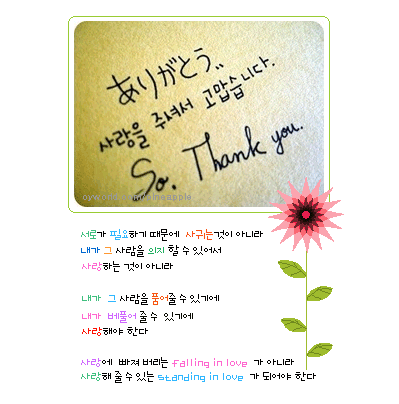 ありがとう、、
사랑을 주셔서 고맙습니다.
So. Thank you.
서로가 필요하기 때문에 사귀는것이 아니라
내가 그 사람을 의지 할 수 있어서
사랑하는 것이 아니라
내가 그 사람을 품어줄 수 있기에
내가 베풀어 줄 수 있기에
사랑해야 한다
사랑에 빠져 버리는 falling in love 가 아니라
사랑해 줄 수 있는 standing in love 가 되어야 한다